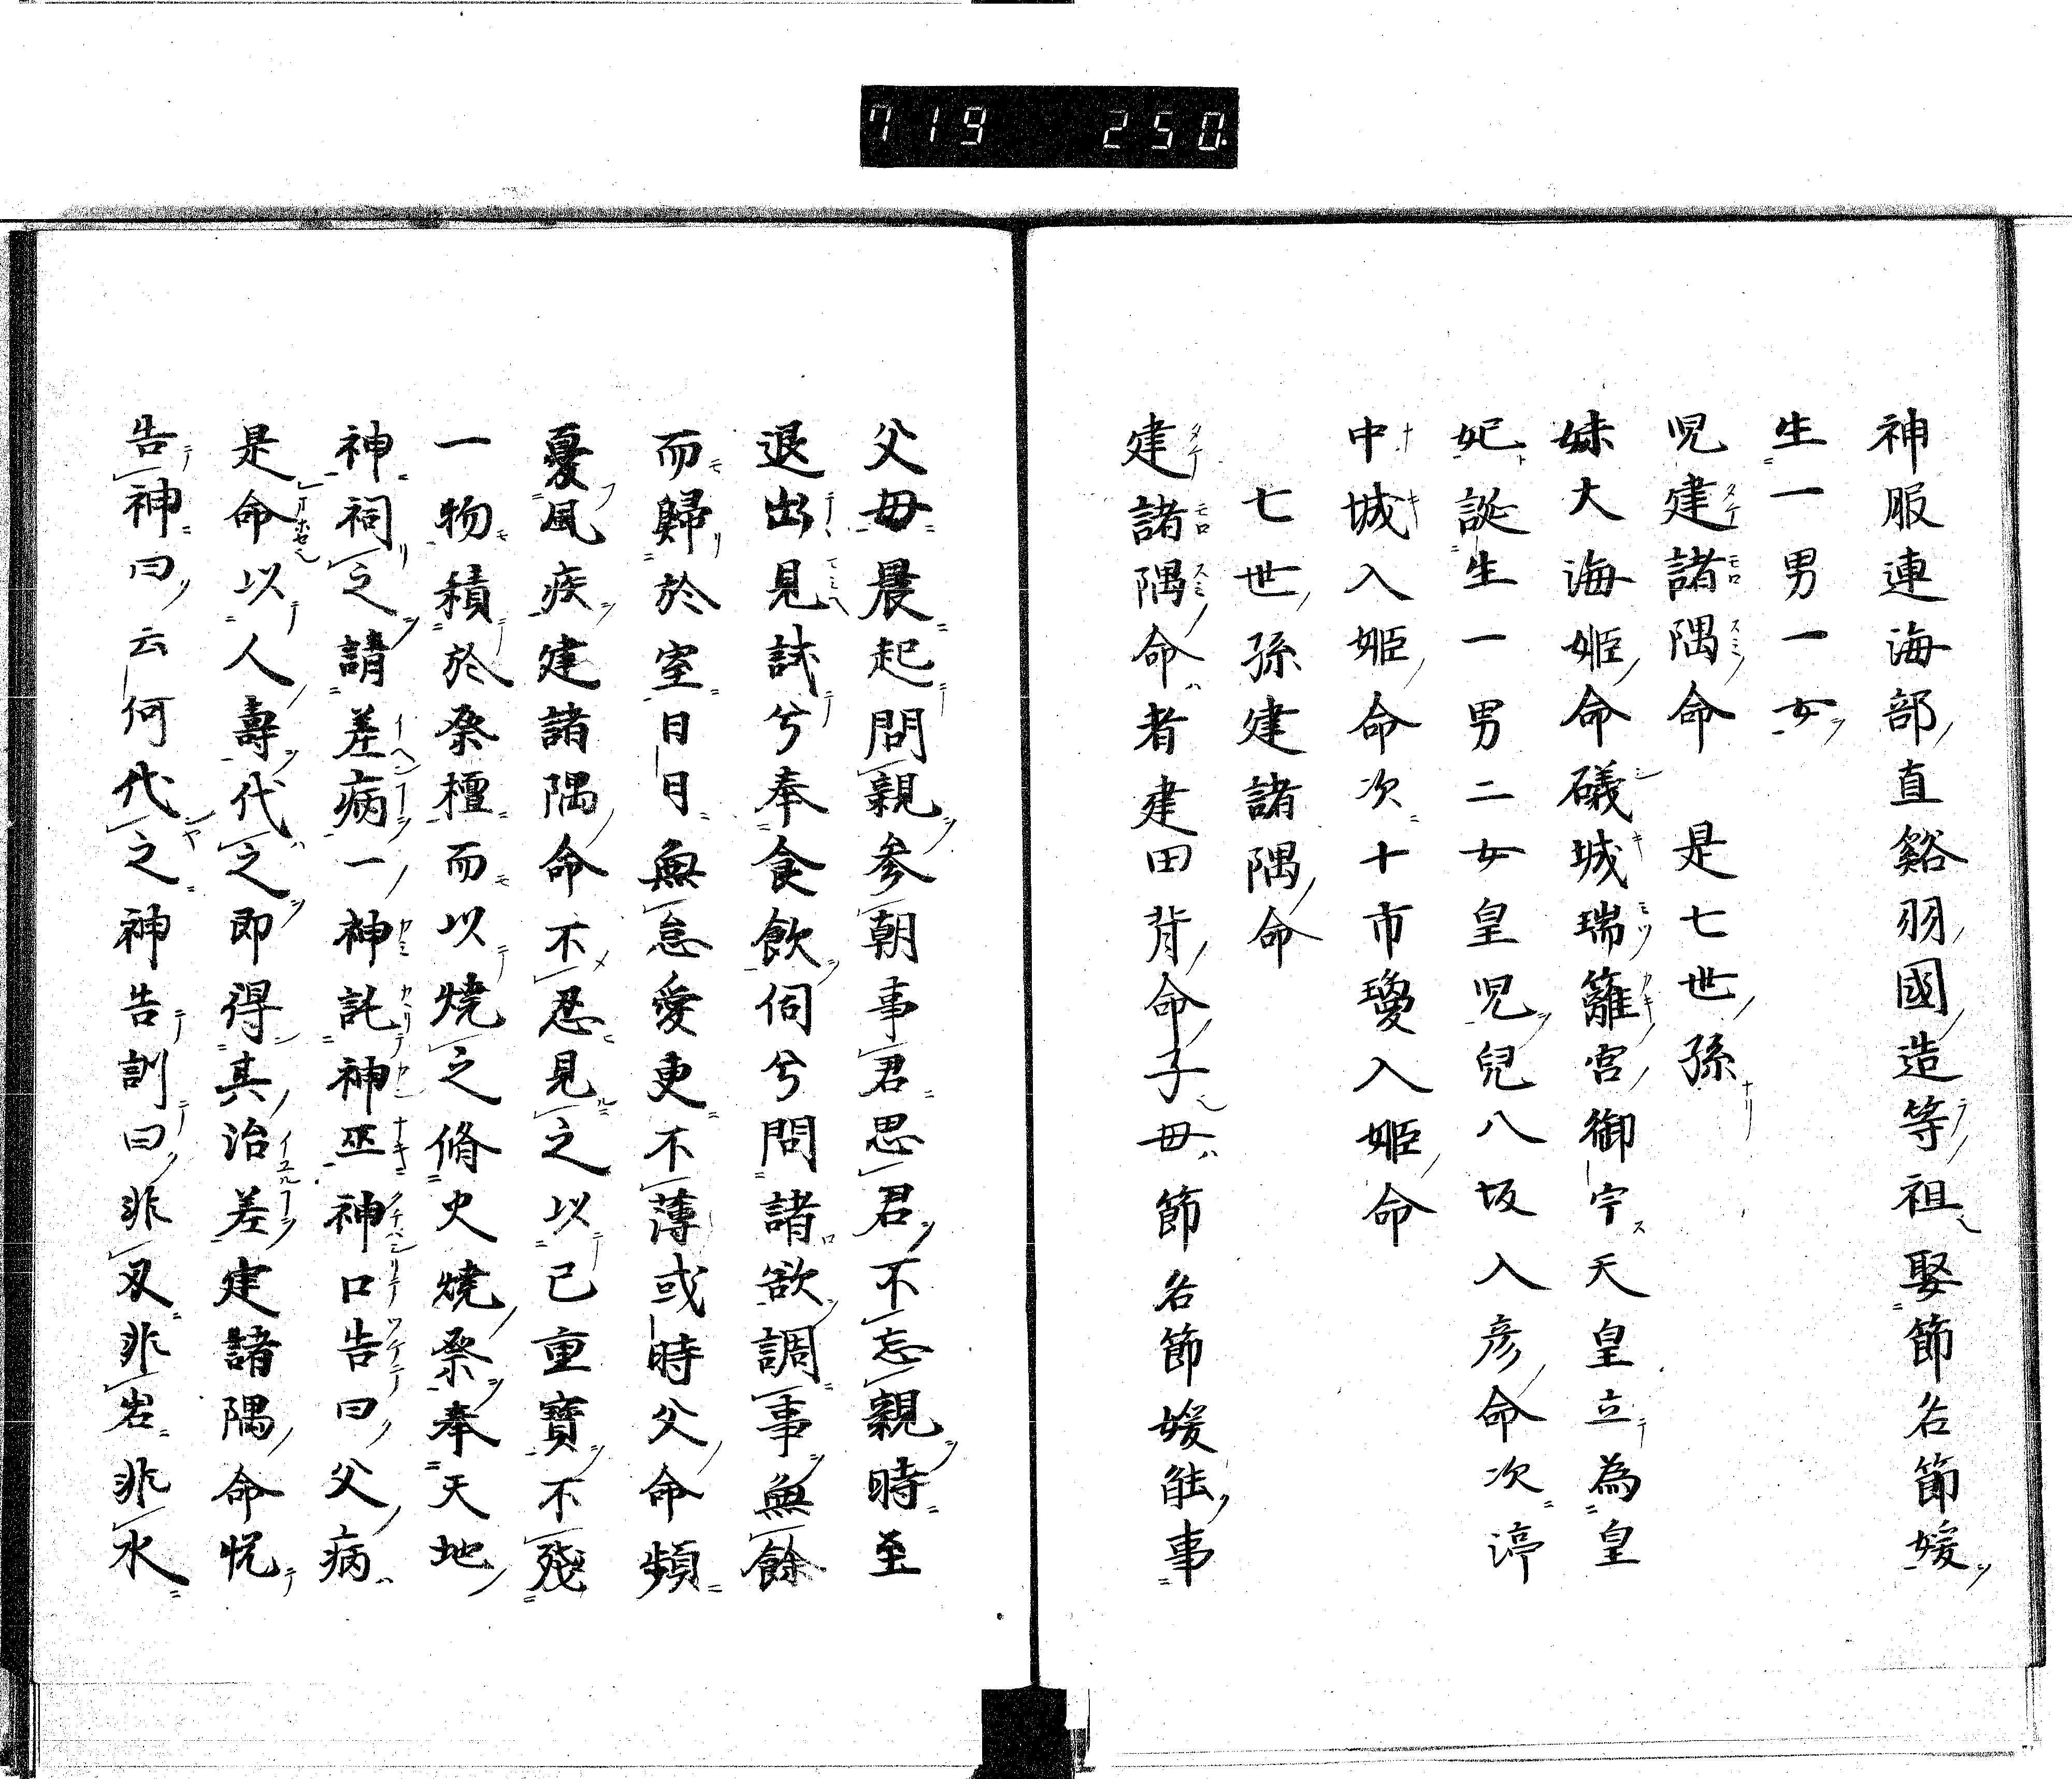 719 250.
神服連海部直谿羽國造等祖娶節名節媛
生一男一女
児建諸隅命 是七世孫
妹大海姫命礒城瑞籬宮御宇天皇立為皇
妃誕生一男二女皇児兒八坂入彦命次渟
中城入姫命次十市瓊入姫命
七世孫建諸隅命
建諸隅命者建田背命子毋節名節媛能事
父毋晨起問親参朝事君思君不忘親時至
退出見試兮奉食飲伺兮問諸欲調事無餘
而歸於室日日無怠愛更不薄或時父命頻
憂風疾建諸隅命不忍見之以己重寶不殘
一物積於祭檀而以燒之脩火燒祭奉天地
神祠之請差病一神託神巫神口告曰父病
是命以人壽代之即得其治差建諸隅命悦
告神曰云何代之神告訓曰非刄非岩非水